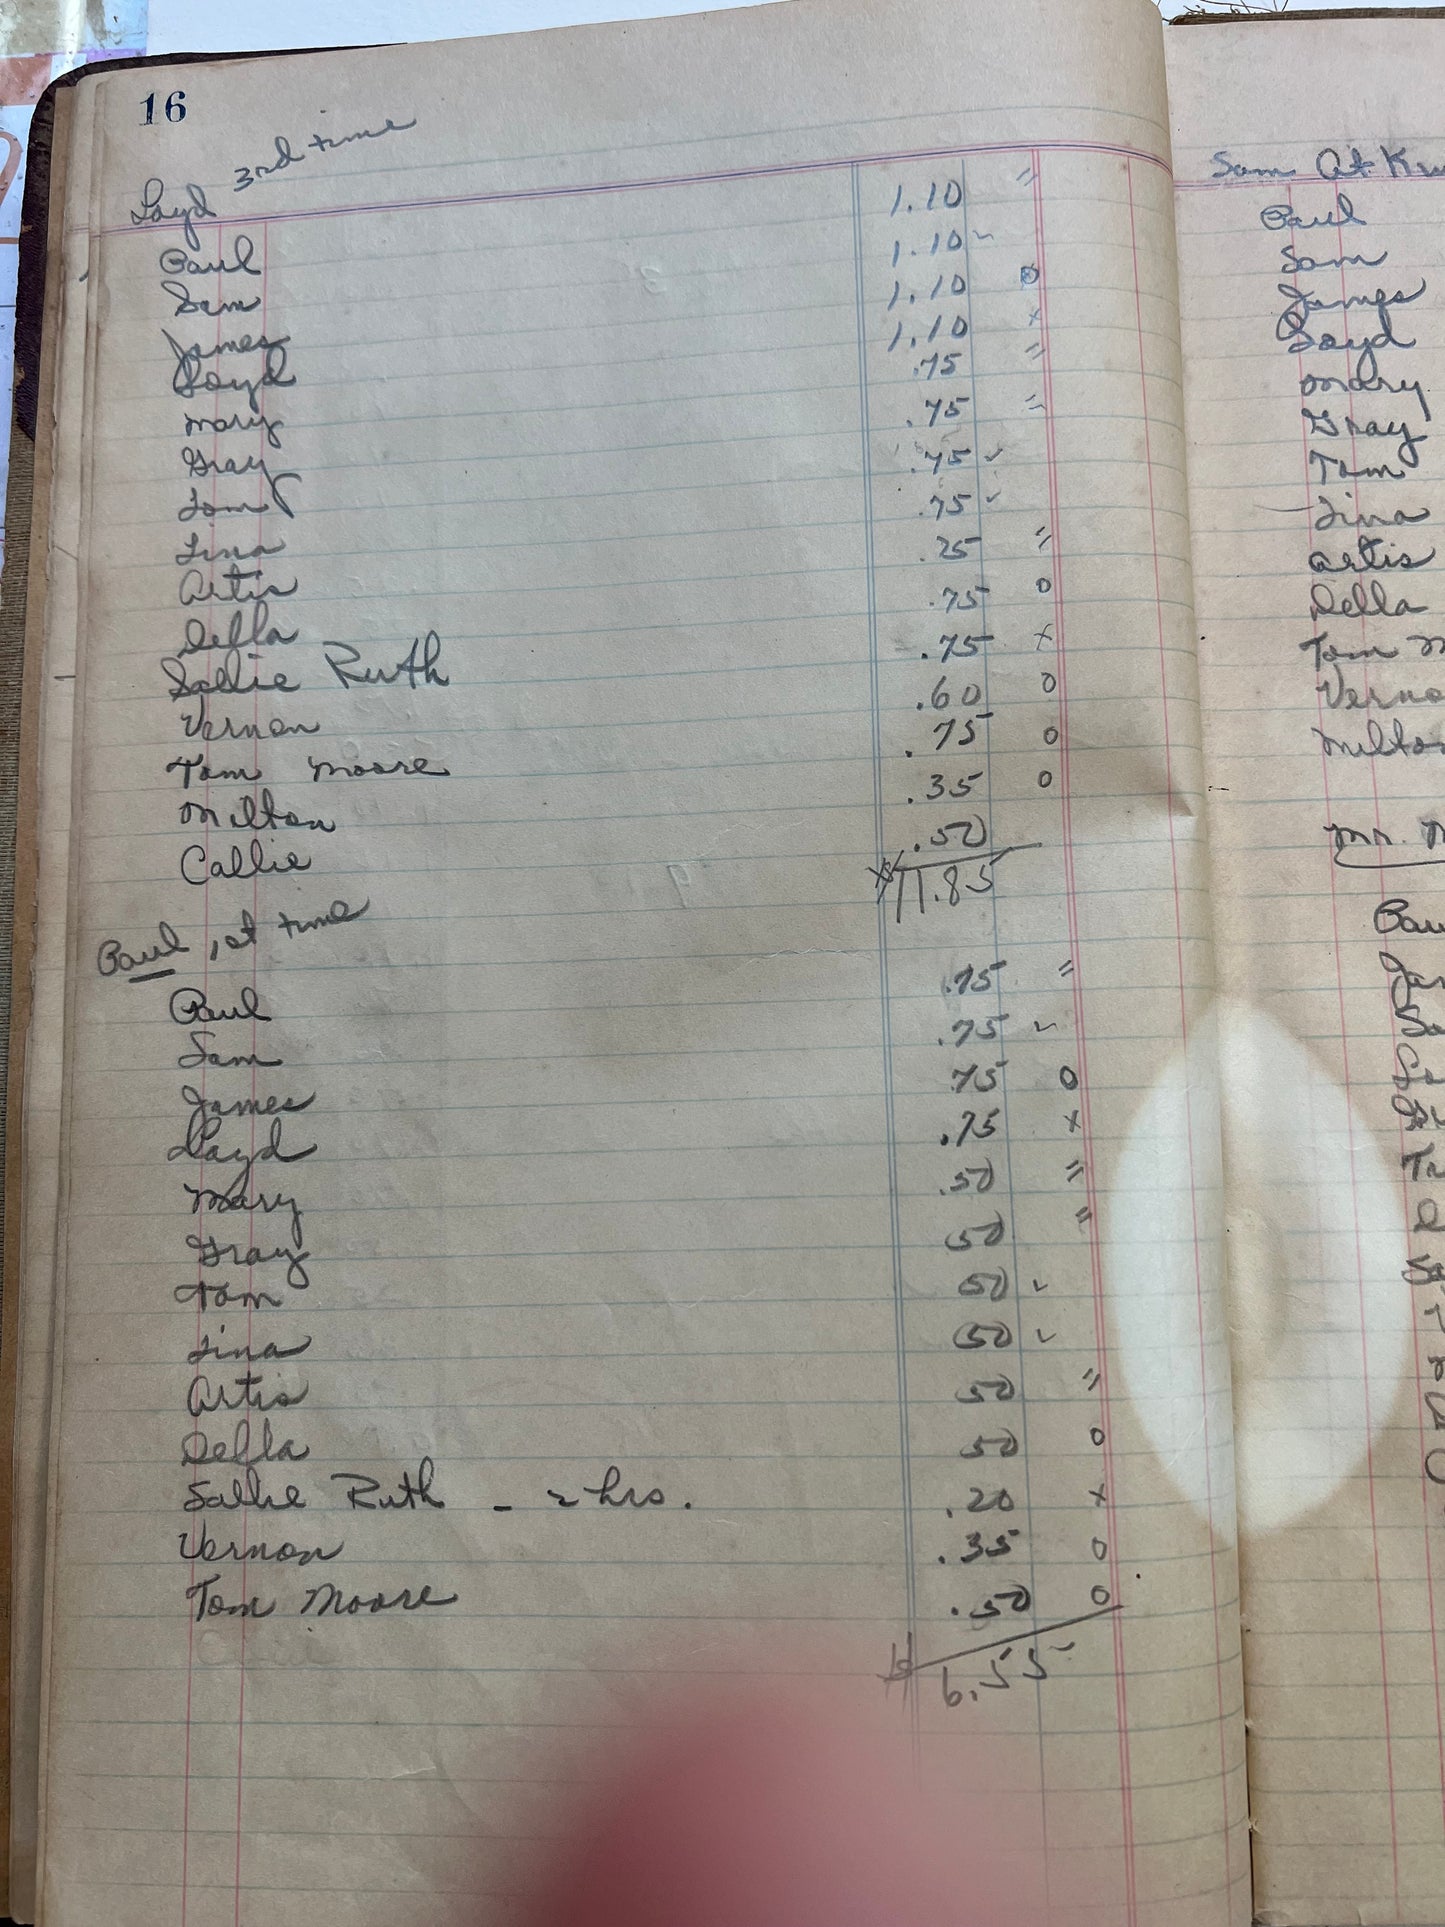 16
3rd time
Loyd
Paul 1.10 "
Sam 1.10 ✓
James 1.10 0
Loyd 1.10 x
Mary .75 "
Gray .75 "
Tom .75 ✓
Lina .75 ✓
Artis .25 "
Della .75 0
Sallie Ruth .75 x
Vernon .60 0
Tom Moore .75 0
Milton .35 0
Callie .50
$11.85
Paul 1st time
Paul .75 "
Sam .75 ✓
James 75 0
Loyd .75 x
Mary .50 "
Gray 50 "
Tom 50 ✓
Lina 50 ✓
Artis 50 "
Della 50 0
Sallie Ruth - 2 hrs. .20 x
Vernon .35 0
Tom Moore .50 0
$6.55
Sam At
Paul
Sam
James
Loyd
Mary
Gray
Tom
Lina
Artis
Della
Tom M
Verno
Milton
Mr.